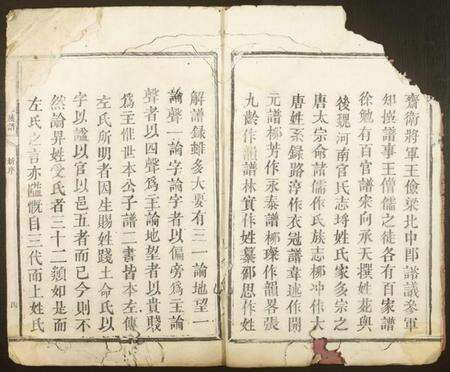 齋衛將軍王儉梁北中郎諮議參軍
知撰譜事王僧孺之徒各有百家譜
徐勉有百官譜宋何承天撰姓苑與
後魏河南官氏志姓氏家多宗之
唐太宗命諸儒作氏族志柳冲作大
唐姓系錄路淳作衣冠譜韋述作開
元譜柳芳作永泰譜柳璨作韻畧張
九齡作譜林寶作姓纂邵思作姓
解譜錄雖多大要有三一論地望一
論聲一論字論字者以偏旁為主論
聲者以四聲為主論地望者以貴賤
為主惟世本公子譜二書皆本左傳
左氏所明者因生賜姓胙土命氏以
字以諡以官以邑五者而已今則不
然論昇姓受氏者三十二類如是而
左氏之言亦隘慨自三代而上姓氏